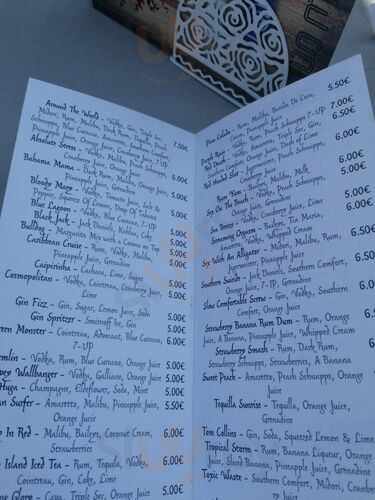 Around The World - Vodka, Gin, Triple Sec,
Midori, Rum, Malibu, Dark Rum, Tequila, Peach
Schnapps, Blue Curacao, Amaretto, Southern Comfort,
Pineapple Juice, Orange Juice, Cranberry Juice, 7-UP 7.50€
Absolute Stress - Vodka, Malibu, Peach Schnapps,
Cranberry Juice, Orange Juice 6.00€
Bahama Mama - Dark Rum, Malibu,
Pineapple Juice, Grenadine 5.00€
Bloody Mary - Vodka, Tomato Juice, Salt &
Pepper, Squeeze Of Lemon, Drop Of Tabasco 5.00€
Blue Lagoon - Vodka, Blue Curacao, 7-UP 5.00€
Black Jack - Jack Daniels, Kahlua, Coke 5.00€
Bulldog - Margarita Mix with a Corona on Top
Caribbean Cruise - Rum, Vodka, Malibu,
Pineapple Juice, Grenadine 5.00€
Caipirinha - Cachaca, Lime, Sugar 5.50€
Cosmopolitan - Vodka, Cointreau, Cranberry Juice,
Lime 5.00€
Gin Fizz - Gin, Sugar, Lemon Juice, Soda 5.00€
Gin Spritzer - Smirnoff Ice, Gin 5.00€
Monster - Cointreau, Advocaat, Blue Curacao,
7-UP 6.00€
- Vodka, Rum, Blue Curacao, Orange Juice 5.00€
Wallbanger - Vodka, Galliano, Orange Juice 5.00€
- Champagne, Elderflower, Soda, Mint 5.00€
Surfer - Amaretto, Malibu, Pineapple Juice,
Orange Juice 5.50€
In Red - Malibu, Baileys, Coconut Cream,
Strawberries 6.00€
Island Iced Tea - Rum, Tequila, Vodka,
Cointreau, Gin, Coke, Lime 6.00€
Glory - Cava, Triple Sec, Orange Juice 5.00€
Pina Colada - Rum, Malibu, Batida De Coco,
Pineapple Juice 5.50€
Purple Rain - Vodka, Rum, Peach Schnapps, 7-UP 7.00€
Red Death - Vodka, Amaretto, Triple Sec, Gin,
Southern Comfort, Orange Juice, Dash of Lime 6.50€
Red Headed Slut - Jagermeister, Peach Schnapps,
Cranberry Juice 6.00€
Rum Yum - Baileys, Malibu, Milk 6.00€
Sex On The Beach - Vodka, Peach Schnapps,
Orange Juice, Grenadine 5.00€
Sea Breeze - Vodka, Cranberry Juice, Lime 5.00€
Screaming Orgasm - Baileys, Tia Maria,
Vodka, Whipped Cream 6.00€
Sex With An Alligator - Midori, Malibu, Rum,
Jagermeister, Pineapple Juice 6.50€
Southern Suicide - Jack Daniels, Southern Comfort,
Orange Juice, 7-UP, Grenadine 6.50€
Slow Comfortable Screw - Gin, Vodka, Southern
Comfort, Orange Juice 6.00€
Strawberry Banana Rum Dum - Rum, Orange
Juice, A Banana, Pineapple Juice, Whipped Cream
Strawberry Smash - Rum, Dark Rum,
Peach Schnapps, Strawberries, A Banana
Sweet Peach - Amaretto, Peach Schnapps, Orange
Juice
Tequila Sunrise - Tequila, Orange Juice,
Grenadine
Tom Collins - Gin, Soda, Squeezed Lemon & Lime
Tropical Storm - Rum, Banana Liqueur, Orange
Juice, Sliced Banana, Pineapple Juice, Grenadine
Toxic Waste - Southern Comfort, Midori,